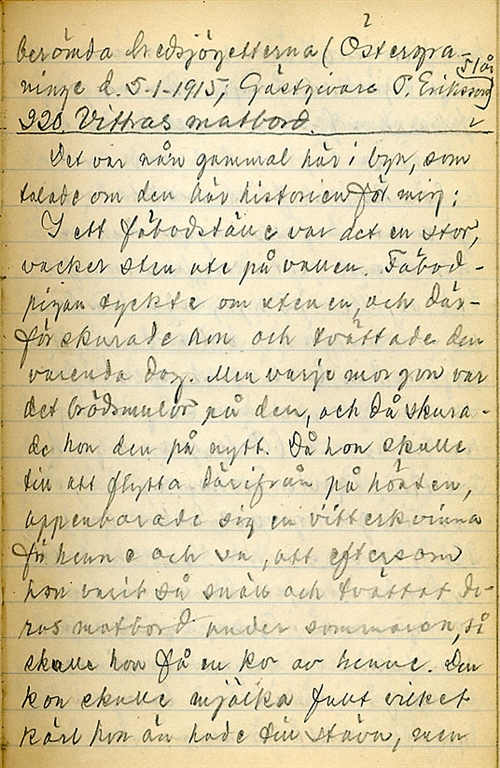 2
berömda Hedsjöjetterna (Östergra-
ninge d. 5-1-1915, Gästgivare P. Eriksson, 51 år)
920. Vittras matbord.
Det var nån gammal här i byn, som
talade om den här historien för mig:
I ett fäbodställe var det en stor,
vacker sten ute på vallen. Fäbod-
pigan tyckte om stenen, och där-
för skurade hon och tvättade den
varenda dag. Men varje morgon var
det brödsmulor på den, och då skura-
de hon den på nytt. Då hon skulle
till att flytta därifrån på hösten,
uppenbarade sig en vitterkvinna
för henne och sa, att eftersom
hon varit så snäll och tvättat de-
ras matbord under sommaren, så
skulle hon få en ko av henne. Den
kon skulle mjölka fullt vilket
kärl hon än hade till stäva, men